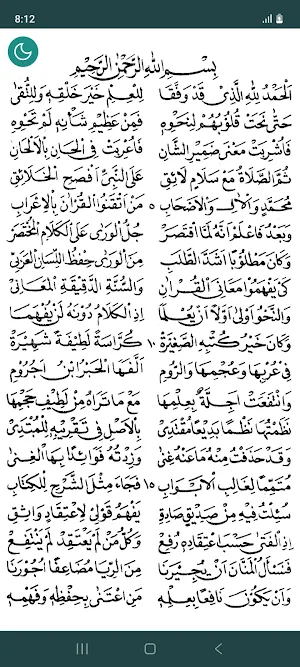 8:12
بِسْمِ اللهِ الرَّحْمٰنِ الرَّحِيْمِ
اَلْحَمْدُ لِلّٰهِ الَّذِيْ قَدْ وَفَّقَا لِلْعِلْمِ خَيْرَ خَلْقِهِ وَلِلتُّقَى
حَتَّى نَحَتْ قُلُوْبُهُمْ لِنَحْوِهِ فَمِنْ عَظِيْمِ شَأْنِهِ لَمْ تَحْوِهِ
فَأُشْرِبَتْ مَعْنَى ضَمِيْرِ الشَّانِ فَأَعْرَبَتْ فِى الْحَانِ بِالْأَلْحَانِ
ثُمَّ الصَّلَاةُ مَعَ سَلَامٍ لَائِقِ عَلَى النَّبِيِّ أَفْصَحِ الْخَلَائِقِ
مُحَمَّدٍ وَالْآلِ وَالْأَصْحَابِ ٥ مَنْ أَتْقَنُوا الْقُرْآنَ بِالْإِعْرَابِ
وَبَعْدُ فَاعْلَمْ أَنَّهُ لَمَّا اقْتَصَرْ جُلُّ الْوَرَى عَلَى الْكَلَامِ الْمُخْتَصَرْ
وَكَانَ مَطْلُوْبًا أَشَدَّ الطَّلَبِ مِنَ الْوَرَى حِفْظُ اللِّسَانِ الْعَرَبِيْ
كَيْ يَفْهَمُوْا مَعَانِيَ الْقُرْآنِ وَالسُّنَّةِ الدَّقِيْقَةِ الْمَعَانِيْ
وَالنَّحْوُ أَوْلَى أَوَّلًا أَنْ يُعْلَمَا إِذِ الْكَلَامُ دُوْنَهُ لَنْ يُفْهَمَا
وَكَانَ خَيْرُ كُتْبِهِ الصَّغِيْرَةْ ١٠ كُرَّاسَةً لَطِيْفَةً شَهِيْرَةْ
فِى عُرْبِهَا وَعُجْمِهَا وَالرُّوْمِ أَلَّفَهَا الْحَبْرُ ابْنُ اٰجُرُّوْمِ
وَانْتَفَعَتْ أَجِلَّةٌ بِعِلْمِهَا مَعَ مَا تَرَاهُ مِنْ لَطِيْفِ حَجْمِهَا
نَظَمْتُهَا نَظْمًا بَدِيْعًا مُقْتَدِيْ بِالْأَصْلِ فِى تَقْرِيْبِهِ لِلْمُبْتَدِيْ
وَقَدْ حَذَفْتُ مِنْهُ مَا عَنْهُ غِنَى وَزِدْتُهُ فَوَائِدًا بِهَا الْغِنَى
مُتَمِّمًا لِغَالِبِ الْأَبْوَابِ ١٥ فَجَاءَ مِثْلَ الشَّرْحِ لِلْكِتَابِ
سُئِلْتُ فِيْهِ مِنْ صَدِيْقٍ صَادِقِ يَفْهَمُ قَوْلِيْ لِاعْتِقَادٍ وَاثِقِ
إِذِ الْفَتَى حَسْبَ اعْتِقَادِهِ رُفِعْ وَكُلُّ مَنْ لَمْ يَعْتَقِدْ لَمْ يَنْتَفِعْ
فَنَسْأَلُ الْمَنَّانَ أَنْ يُجِيْرَنَا مِنَ الرِّيَا مُضَاعِفًا أُجُوْرَنَا
وَأَنْ يَكُوْنَ نَافِعًا بِعِلْمِهِ مَنِ اعْتَنَى بِحِفْظِهِ وَفَهْمِهِ